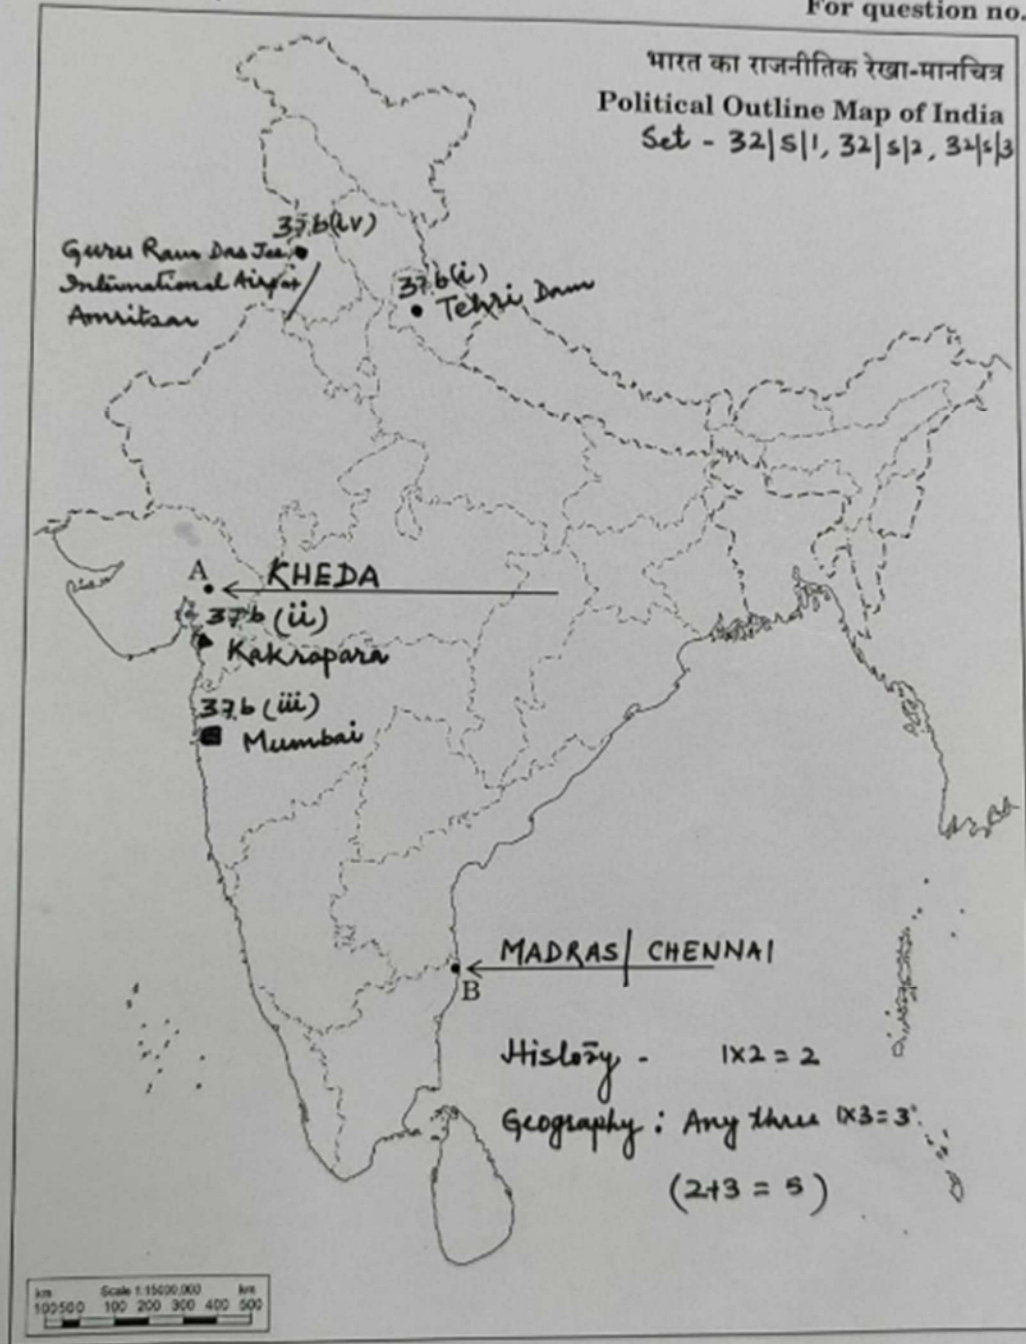 For question no.
भारत का राजनीतिक रेखा-मानचित्र
Political Outline Map of India
Set - 32|S|1, 32|S|2, 32|S|3
37.b(iv)
Guru Ram Das Jee
International Airport
Amritsar
37.b(i)
Tehri Dam
A
KHEDA
37.b (ii)
Kakrapara
37.b (iii)
Mumbai
MADRAS| CHENNAI
B
History - 1x2 = 2
Geography : Any three 1x3=3
(2+3 = 5)
km Scale 1:15000,000 km
100500 100 200 300 400 500